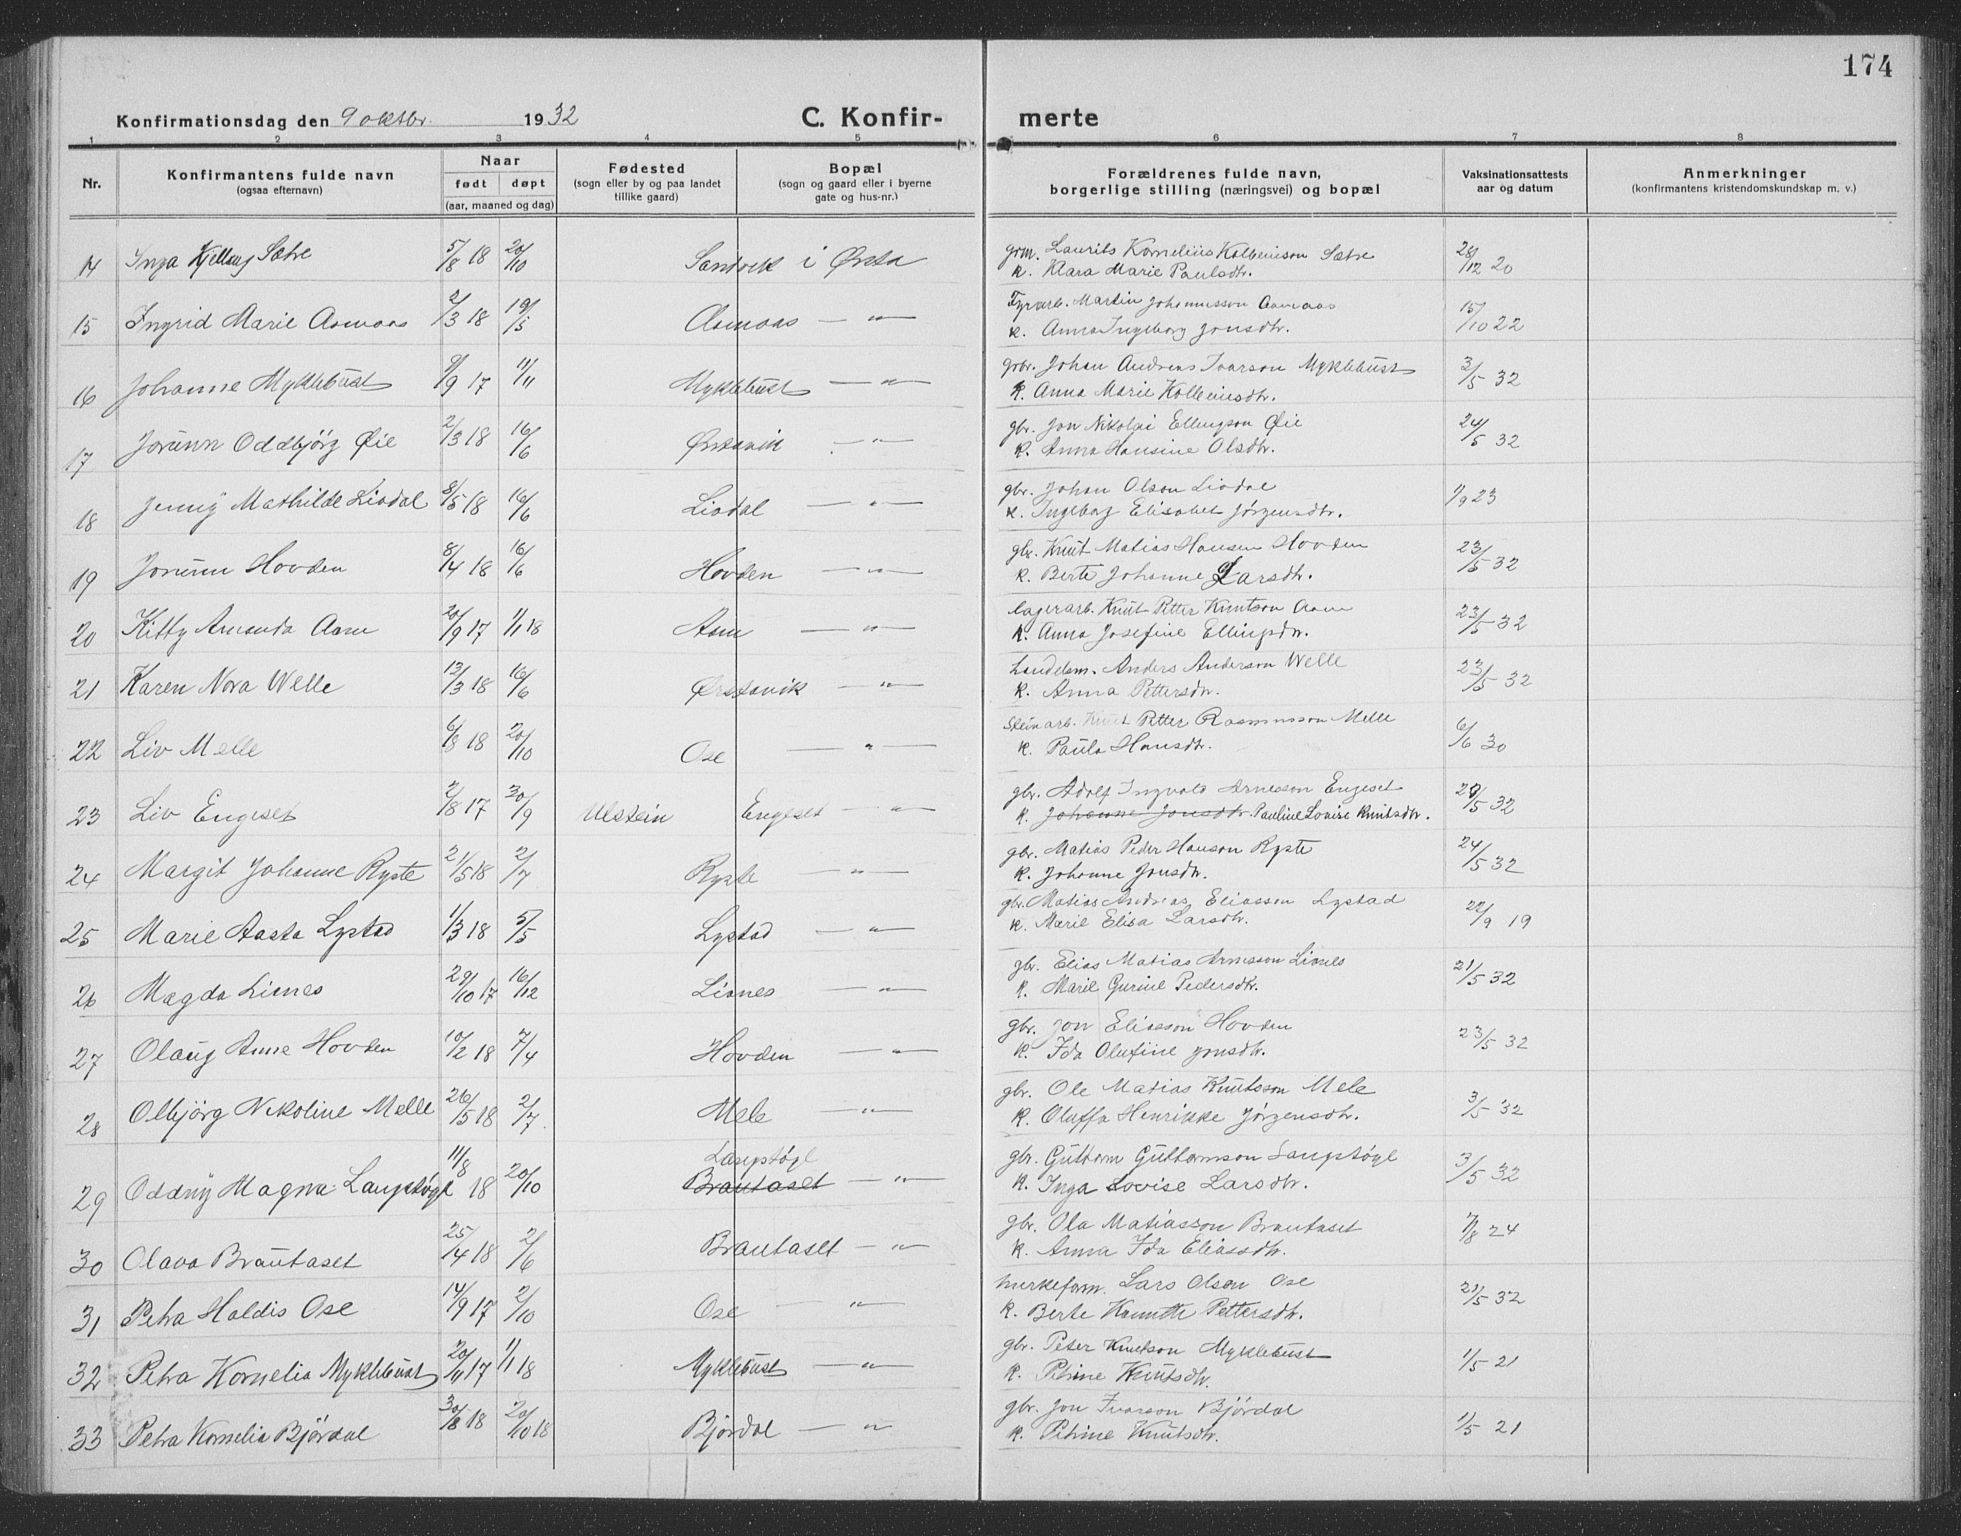 174
Konfirmationsdag den 9 oktbr. 1932 C. Konfirmerte
1 2 3 4 5 6 7 8
Nr. Konfirmantens fulde navn (ogsaa efternavn) Naar født døpt (aar, maaned og dag) Fødested (sogn eller by og paa landet tillike gaard) Bopæl (sogn og gaard eller i byerne gate og hus-nr.) Forældrenes fulde navn, borgerlige stilling (næringsvei) og bopæl Vaksinationsattests aar og datum Anmerkninger (konfirmantens kristendomskundskap m. v.)
14 Inga Kjellaug Sætre 5/8 18 20/10 Sandvik i Ørsta grm. Laurits Kornelius Kolbeinson Sætre 28/12 20
k. Klara Marie Paulsdtr.
15 Ingrid Marie Aamaas 2/3 18 19/5 Aamaas — " — Martin Johannesson Aamaas 15/10 22
k. Anna Ingeborg Jonsdtr.
16 Johanne Myklebust 9/9 17 11/11 Myklebust — " — gbr. Johan Andreas Ivarson Myklebust 3/5 32
k. Anna Marie Kolbeinsdtr.
17 Jorunn Oddbjörg Øie 2/3 18 16/6 Ørstavik — " — gbr. Jon Nikolai Ellingson Øie 24/5 32
k. Anna Hansine Olsdtr.
18 Jenny Mathilde Liadal 8/5 18 16/6 Liadal — " — gbr. Johan Olson Liadal 1/9 23
k. Ingeborg Elisabet Jørgensdtr.
19 Jorunn Hovden 8/4 18 16/6 Hovden — " — gbr. Knut Matias Hansen Hovden 23/5 32
k. Berte Johanne Larsdtr.
20 Kitty Amanda Aam 20/9 17 1/1 18 Aam — " — lagerarb. Knut Petter Knutson Aam 23/5 32
k. Anna Josefine Ellingsdtr.
21 Karen Nora Welle 13/3 18 16/6 Ørstavik — " — Anders Anderson Welle 23/5 32
k. Anna Pettersdtr.
22 Liv Melle 6/8 18 20/10 Ose — " — Steinarb. Knut Petter Rasmusson Melle 6/6 30
k. Paula Hansdtr.
23 Liv Engeset 2/8 17 30/9 Ulstein Engeset — " — gbr. Adolf Ingvald Arnesson Engeset 5 32
k. Johanne Jonsdtr. Pauline Lovise Knutsdtr.
24 Margit Johanne Ryste 21/5 18 2/7 Ryste — " — gbr. Matias Peder Hanson Ryste 24/5 32
k. Johanne Jonsdtr.
25 Marie Aasta Lystad 1/3 18 5/5 Lystad — " — gbr. Matias Andreas Eliasson Lystad 22/9 19
k. Marie Elisa Larsdtr.
26 Magda Lianes 29/10 17 16/12 Lianes — " — gbr. Elias Matias Arnesson Lianes 21/5 32
k. Marie Gurine Pedersdtr.
27 Olaug Anne Hovden 10/2 18 7/4 Hovden — " — gbr. Jon Eliasson Hovden 23/5 32
k. Ida Olufine Jonsdtr.
28 Olbjörg Nikoline Melle 26/5 18 2/7 Mele — " — gbr. Ole Matias Knutsson Mele 3/5 32
k. Oluffa Henrikke Jørgensdtr.
29 Oddny Magna Langstøyl 11/8 18 20/10 Langstøyl Brautaset — " — gbr. Guttorm Guttormson Langstøyl 3/5 32
k. Inga Lovise Larsdtr.
30 Olava Brautaset 25/4 18 2/6 Brautaset — " — gbr. Ola Matiasson Brautaset 7/8 24
k. Anna Ida Eliasdtr.
31 Petra Haldis Ose 14/9 17 2/10 Ose — " — Lars Olson Ose 21/5 32
k. Berte Pettersdtr.
32 Petra Kornelia Myklebust 20/11 17 1/1 18 Myklebust — " — gbr. Peter Knutson Myklebust 1/5 21
k. Petrine Knutsdtr.
33 Petra Kornelia Bjørdal 30/8 18 20/10 18 Bjørdal — " — gbr. Jon Ivarson Bjørdal 1/5 21
k. Petrine Knutsdtr.